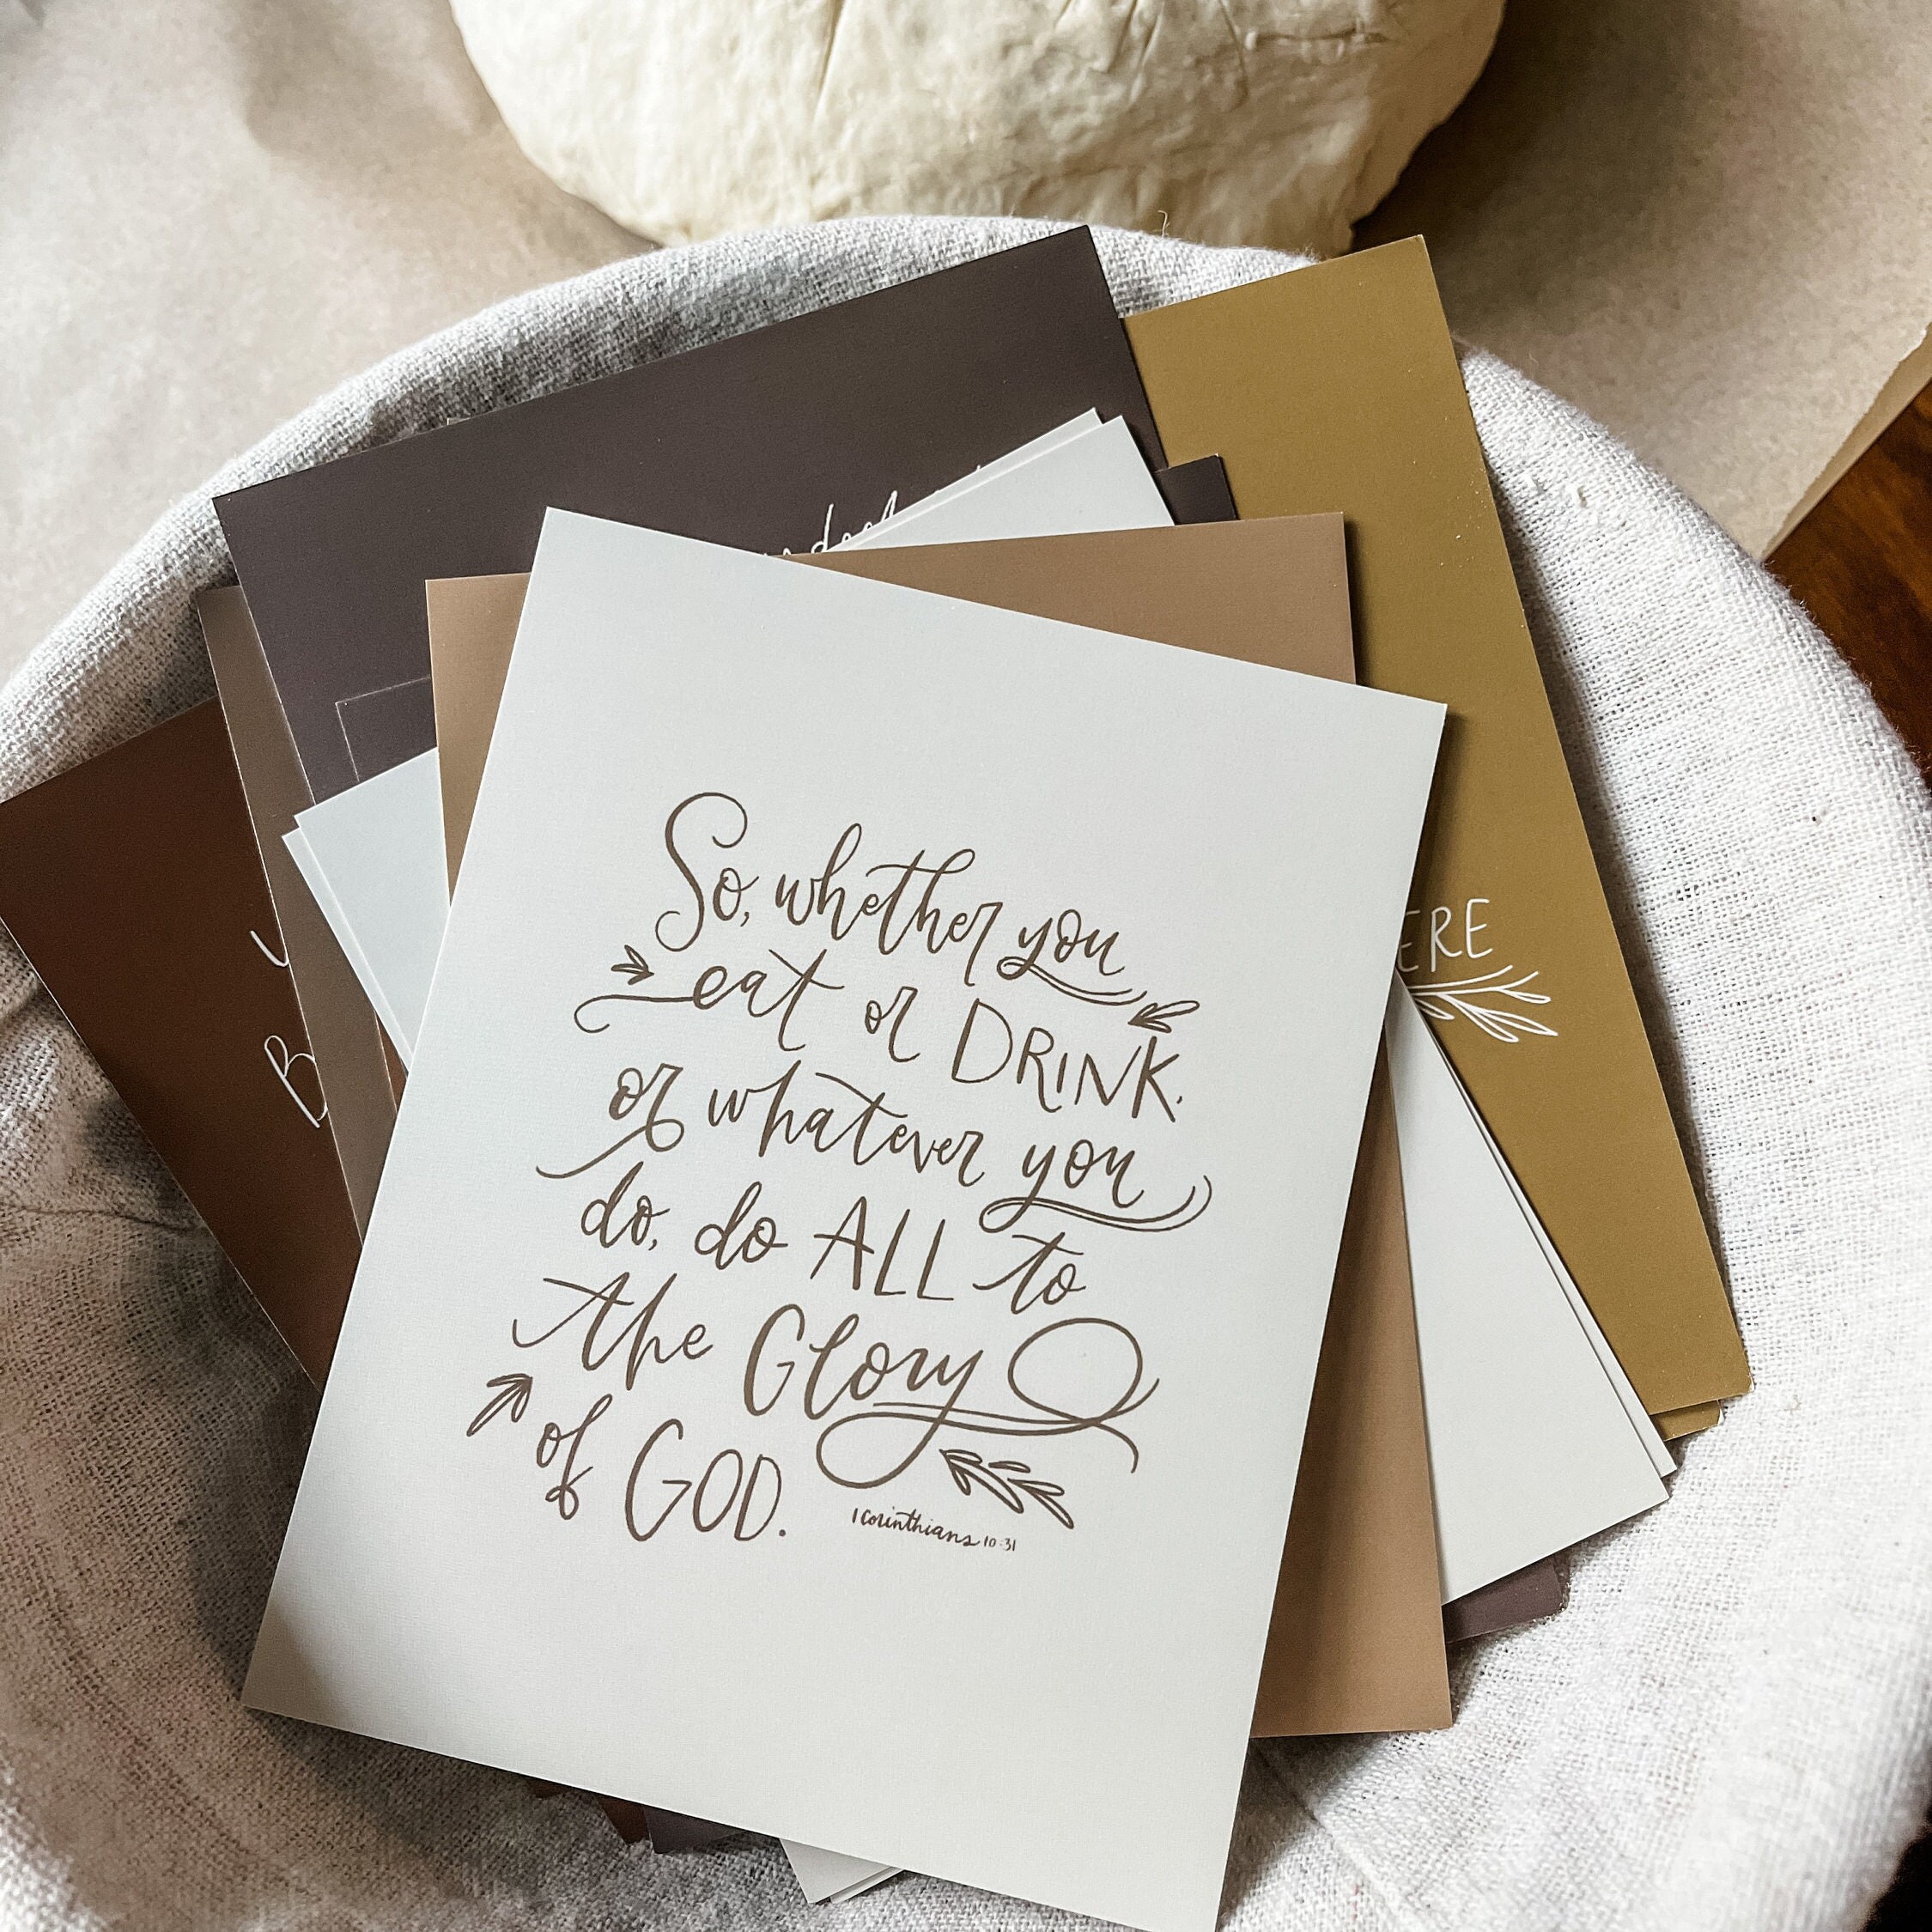 So, whether you
eat or DRINK,
or whatever you
do, do ALL to
the Glory
of GOD.
1 Corinthians 10:31
ERE